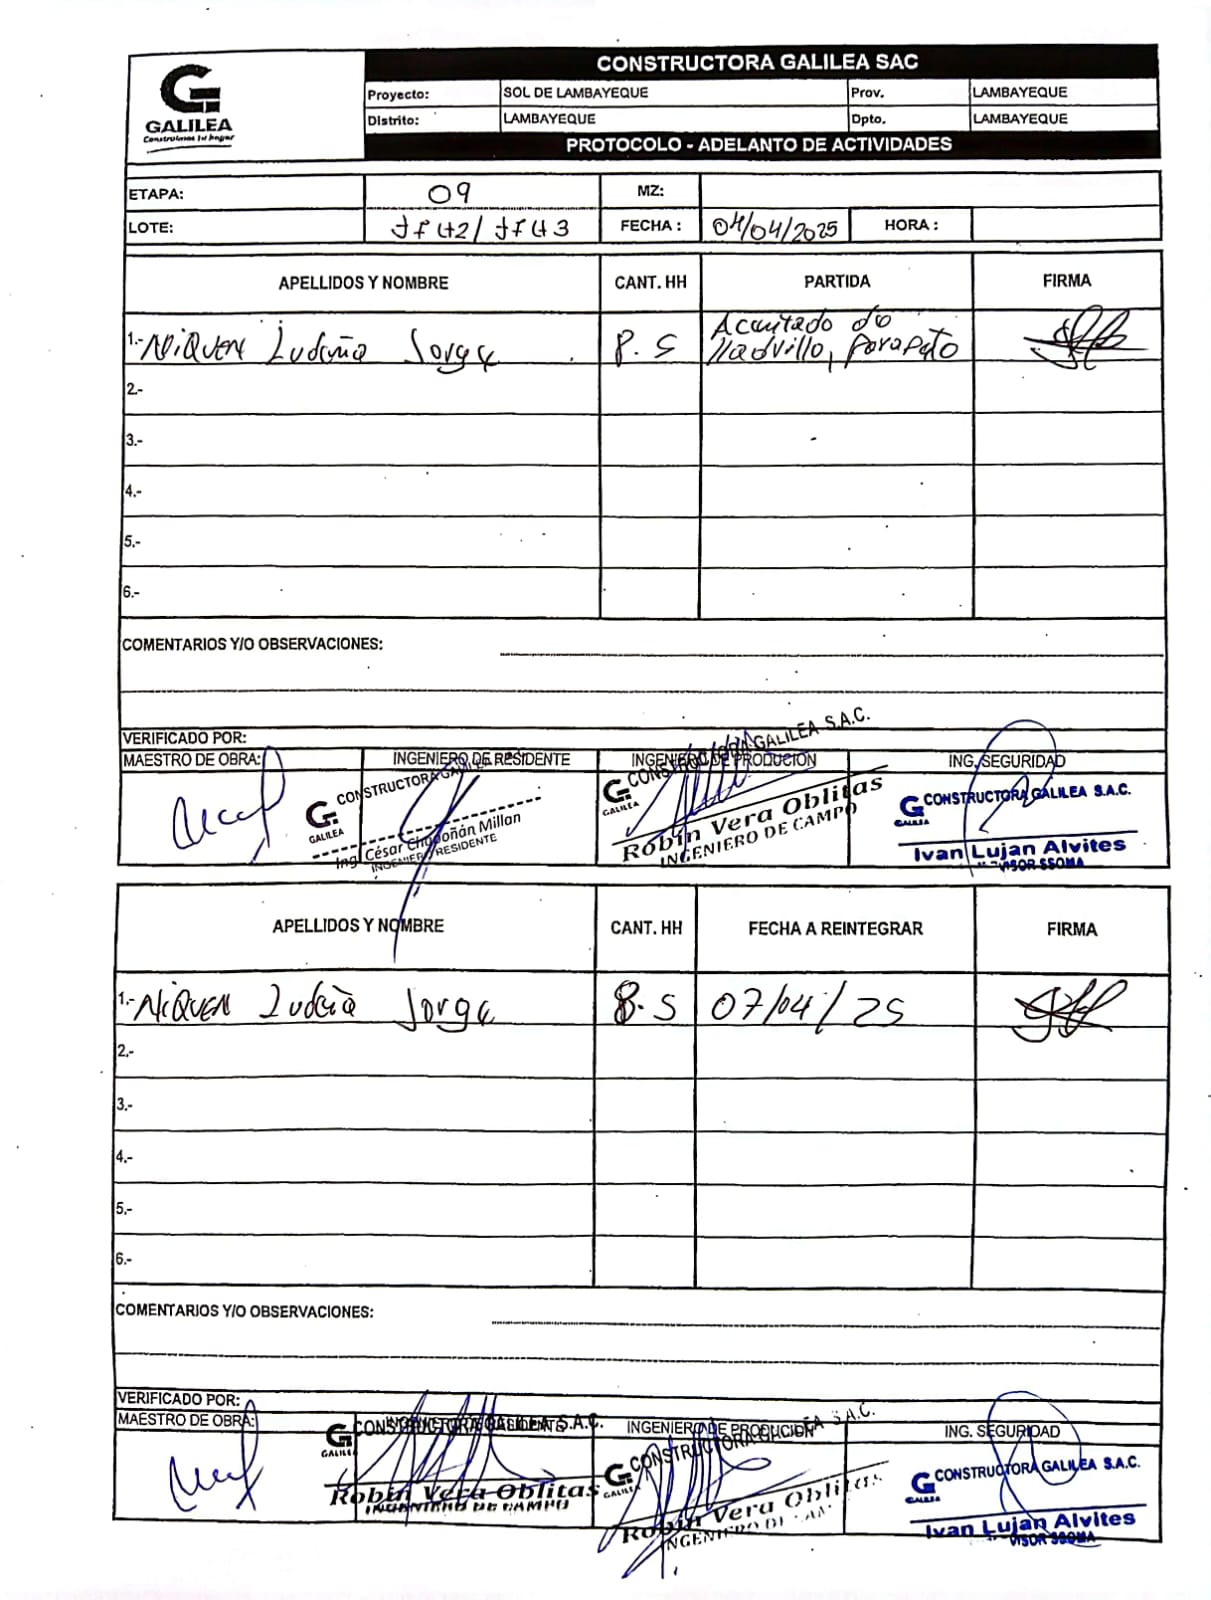 CONSTRUCTORA GALILEA SAC
GALILEA
Construimos tu hogar
Proyecto: SOL DE LAMBAYEQUE Prov. LAMBAYEQUE
Distrito: LAMBAYEQUE Dpto. LAMBAYEQUE
PROTOCOLO - ADELANTO DE ACTIVIDADES
ETAPA: 09 MZ:
LOTE: Jf 42/ Jf 43 FECHA : 04/04/2025 HORA :
APELLIDOS Y NOMBRE CANT. HH PARTIDA FIRMA
1.- ÑIQUEN Ludeña Jorge 8.5 Acarreado de
ladrillo, Parapeto
2.-
3.-
4.-
5.-
6.-
COMENTARIOS Y/O OBSERVACIONES:
VERIFICADO POR:
MAESTRO DE OBRA: INGENIERO DE RESIDENTE INGENIERO DE PRODUCION ING. SEGURIDAD
CONSTRUCTORA GALILEA
GALILEA
Ing. César Chapoñán Millan
INGENIERO RESIDENTE
CONSTRUCTORA GALILEA S.A.C.
GALILEA
Robin Vera Oblitas
INGENIERO DE CAMPO
CONSTRUCTORA GALILEA S.A.C.
GALILEA
Ivan Lujan Alvites
VISOR SSOMA
APELLIDOS Y NOMBRE CANT. HH FECHA A REINTEGRAR FIRMA
1.- ÑIQUEN Ludeña Jorge 8.5 07/04/25
2.-
3.-
4.-
5.-
6.-
COMENTARIOS Y/O OBSERVACIONES:
VERIFICADO POR:
MAESTRO DE OBRA: INGENIERO DE RESIDENTE INGENIERO DE PRODUCION ING. SEGURIDAD
CONSTRUCTORA GALILEA S.A.C.
GALILEA
Robin Vera Oblitas
INGENIERO DE CAMPO
CONSTRUCTORA GALILEA S.A.C.
GALILEA
Robin Vera Oblitas
INGENIERO DE CAM
CONSTRUCTORA GALILEA S.A.C.
GALILEA
Ivan Lujan Alvites
VISOR SSOMA